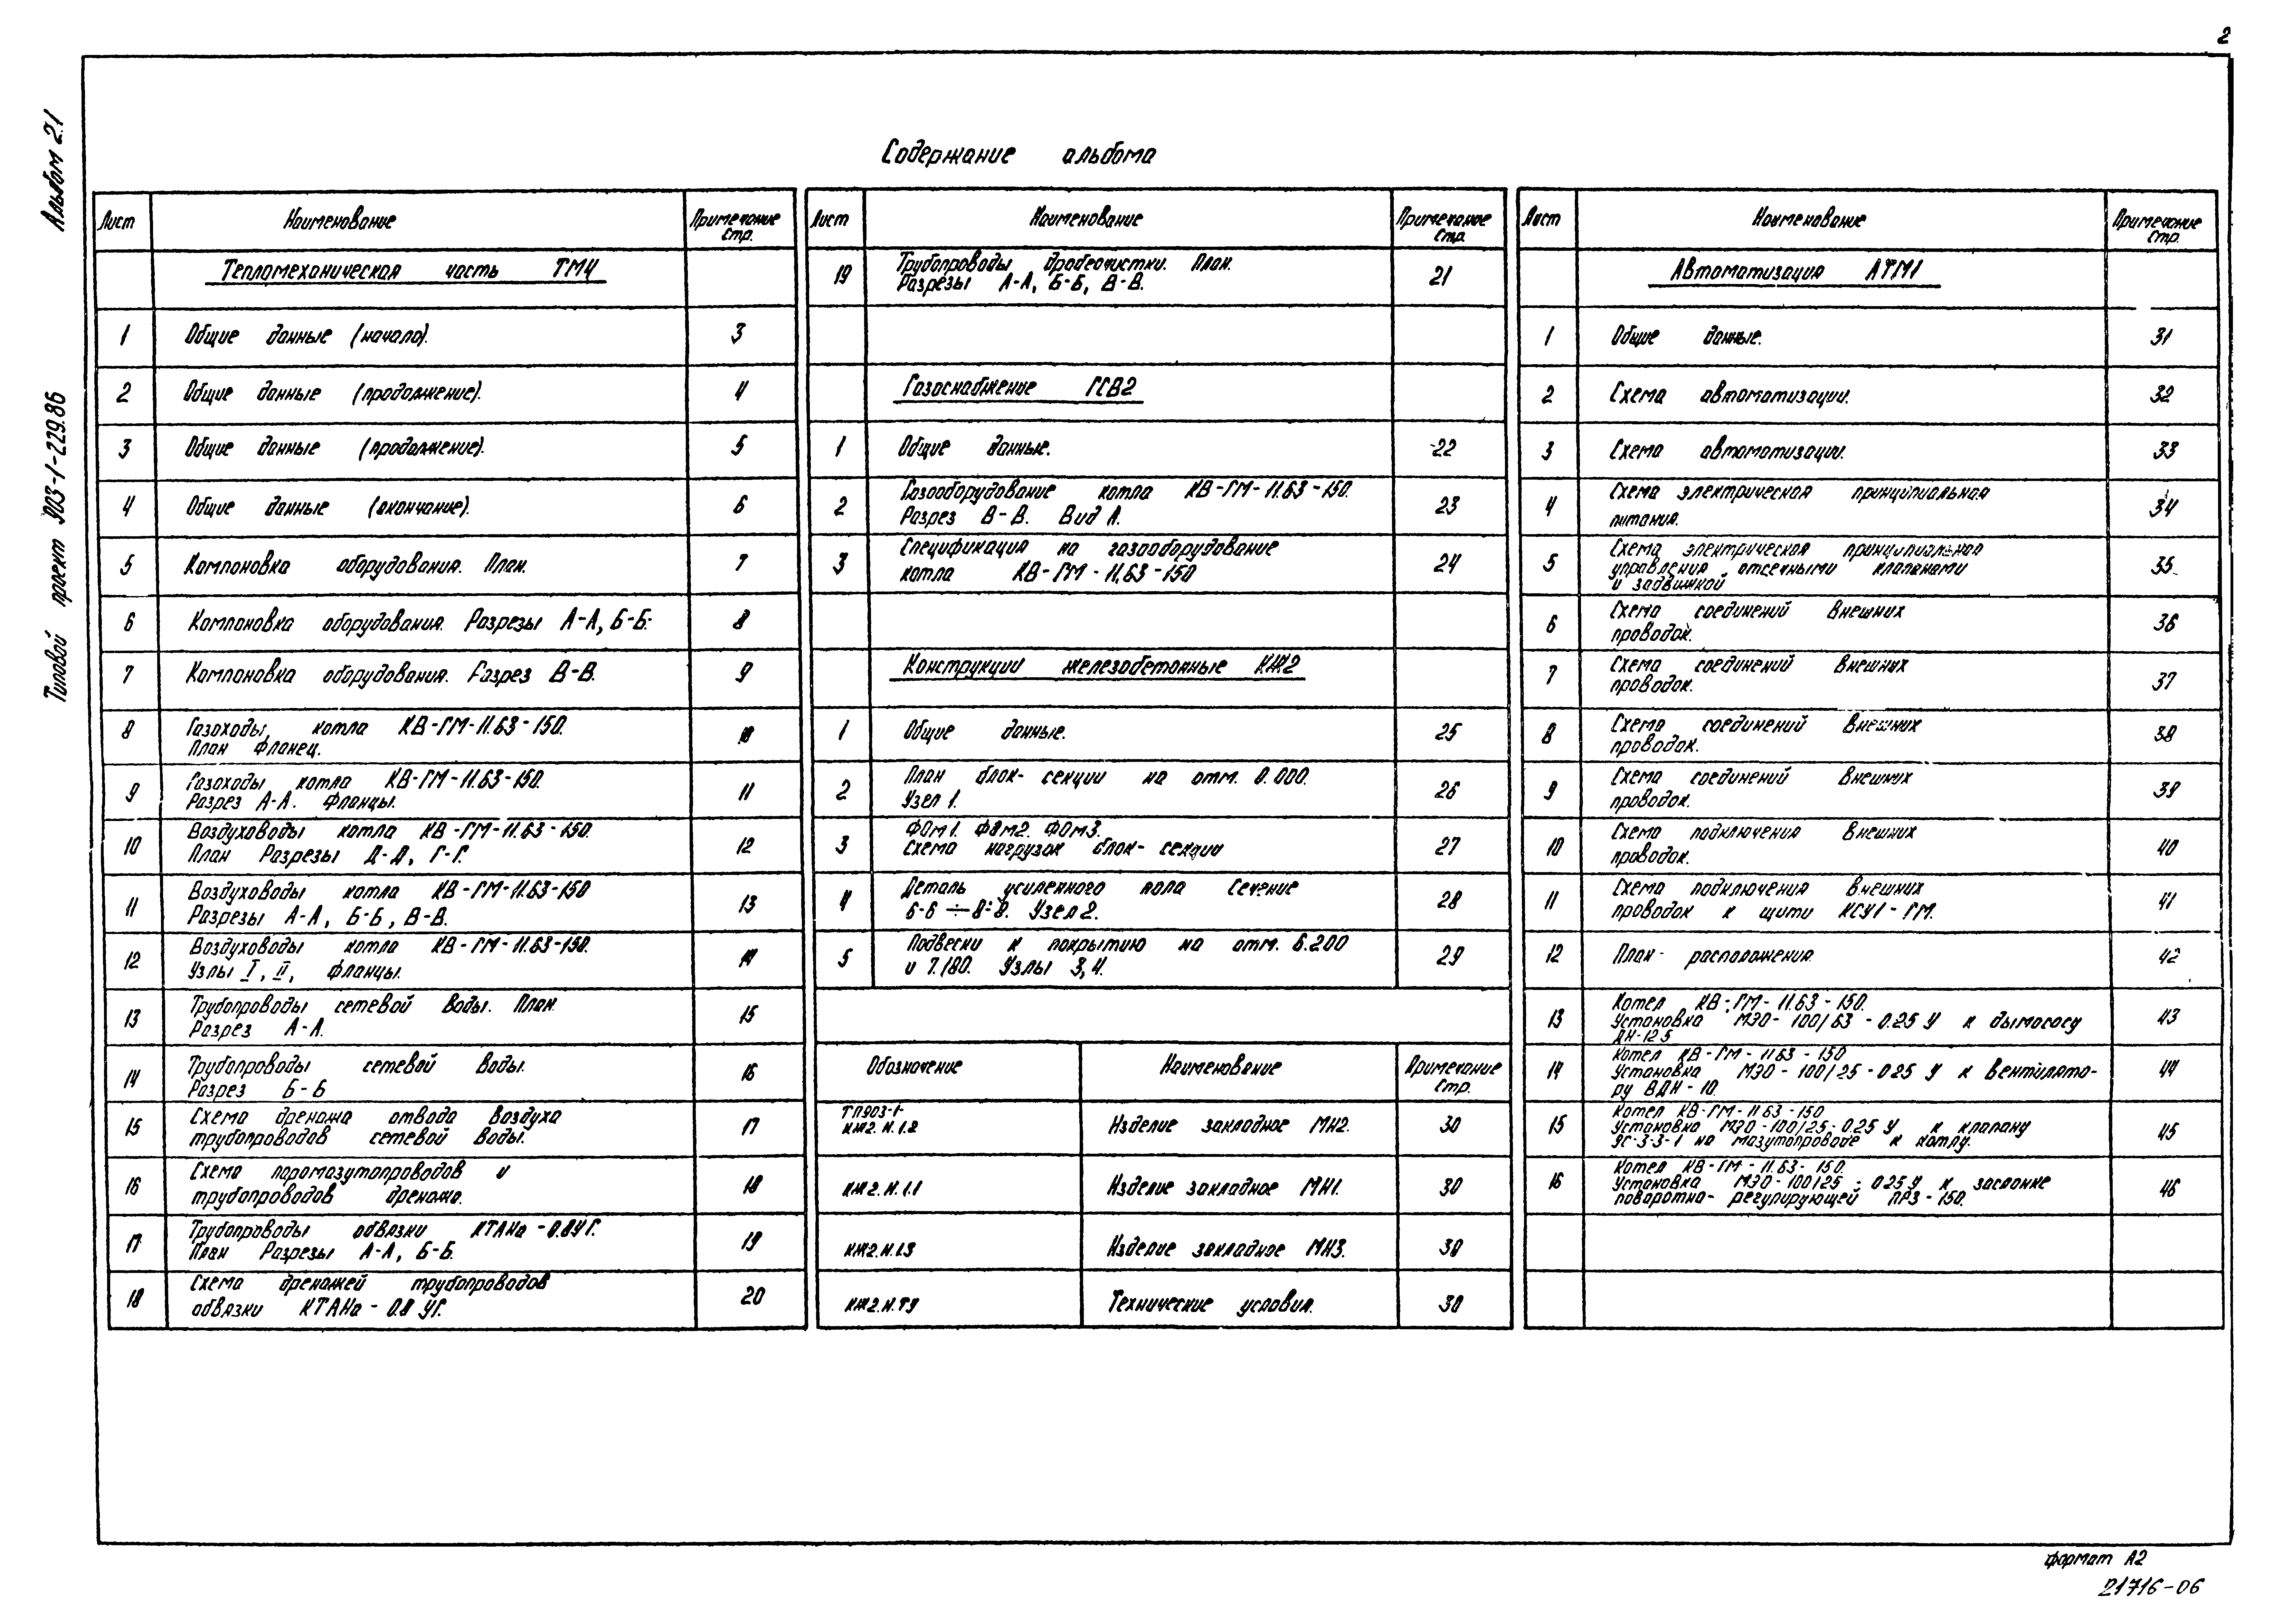 2
Альбом 2.1
Типовой проект 903-1-229.86
Содержание альбома
Лист Наименование Примечание стр.
Тепломеханическая часть ТМ4
1 Общие данные (начало). 3
2 Общие данные (продолжение). 4
3 Общие данные (продолжение). 5
4 Общие данные (окончание). 6
5 Компоновка оборудования. План. 7
6 Компоновка оборудования. Разрезы А-А, Б-Б. 8
7 Компоновка оборудования. Разрез В-В. 9
8 Газоходы котла КВ-ГМ-11.63-150.
План Фланец. 10
9 Газоходы котла КВ-ГМ-11.63-150.
Разрез А-А. Фланцы. 11
10 Воздуховоды котла КВ-ГМ-11.63-150.
План Разрезы Д-Д, Г-Г. 12
11 Воздуховоды котла КВ-ГМ-11.63-150
Разрезы А-А, Б-Б, В-В. 13
12 Воздуховоды котла КВ-ГМ-11.63-150.
Узлы I, II, фланцы. 14
13 Трубопроводы сетевой воды. План.
Разрез А-А. 15
14 Трубопроводы сетевой воды.
Разрез Б-Б 16
15 Схема дренажа отвода воздуха
трубопроводов сетевой воды. 17
16 Схема паромазутопроводов и
трубопроводов дренажа. 18
17 Трубопроводы обвязки КТАНа-0.8УГ.
План Разрезы А-А, Б-Б. 19
18 Схема дренажей трубопроводов
обвязки КТАНа-0.8 УГ. 20
Лист Наименование Примечание стр.
19 Трубопроводы дробеочистки. План.
Разрезы А-А, Б-Б, В-В. 21
Газоснабжение ГСВ2
1 Общие данные. 22
2 Газооборудование котла КВ-ГМ-11.63-150.
Разрез В-В. Вид А. 23
3 Спецификация на газооборудование
котла КВ-ГМ-11.63-150 24
Конструкции железобетонные КЖ2
1 Общие данные. 25
2 План блок-секции на отм. 0.000.
Узел 1. 26
3 ФОм1. ФОм2. ФОм3.
Схема нагрузок блок-секции 27
4 Деталь усиленного пола Сечение
6-6 ÷ 8-8. Узел 2. 28
5 Подвески к покрытию на отм. 6.200
и 7.180. Узлы 3, 4. 29
Обозначение Наименование Примечание стр.
ТП903-1-
КЖ2.И.1.2 Изделие закладное МН2. 30
КЖ2.И.1.1 Изделие закладное МН1. 30
КЖ2.И.1.3 Изделие закладное МН3. 30
КЖ2.И.ТУ Технические условия. 30
Лист Наименование Примечание стр.
Автоматизация АТМ1
1 Общие данные. 31
2 Схема автоматизации. 32
3 Схема автоматизации. 33
4 Схема электрическая принципиальная
питания. 34
5 Схема электрическая принципиальная
управления отсечными клапанами
и задвижкой 35
6 Схема соединений внешних
проводок. 36
7 Схема соединений внешних
проводок. 37
8 Схема соединений внешних
проводок. 38
9 Схема соединений внешних
проводок. 39
10 Схема подключения внешних
проводок. 40
11 Схема подключения внешних
проводок к щиту КСУ1-ГМ. 41
12 План расположения. 42
13 Котел КВ-ГМ-11.63-150.
Установка МЭО-100/63-0.25 У к дымососу
ДН-12.5 43
14 Котел КВ-ГМ-11.63-150
Установка МЭО-100/25-0.25 У к вентилято-
ру ВДН-10. 44
15 Котел КВ-ГМ-11.63-150
Установка МЭО-100/25-0.25 У к клапану
9с-3-3-1 на мазутопроводе к котлу. 45
16 Котел КВ-ГМ-11.63-150.
Установка МЭО-100/25-0.25 У к заслонке
поворотно-регулирующей ПРЗ-150. 46
формат А2
21716-06